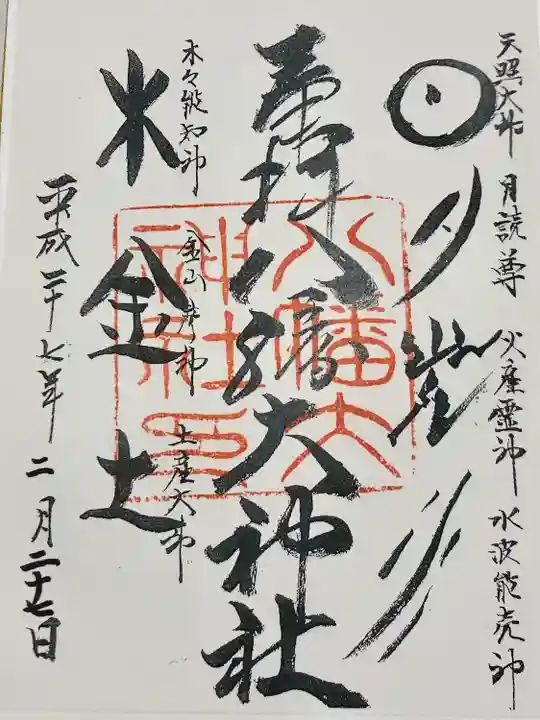 天照大神 月読尊 火産霊神 水波能売神
月
奉拝 八幡大神社
八幡大神社印
木々能知神 金山彦神 土産大神
木 金 土
平成二十七年 二月二十七日